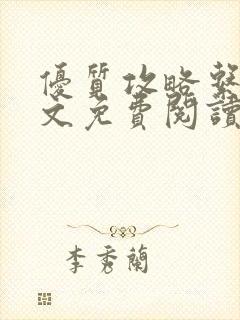 優質攻略繫
文免費閱讀
李秀蘭